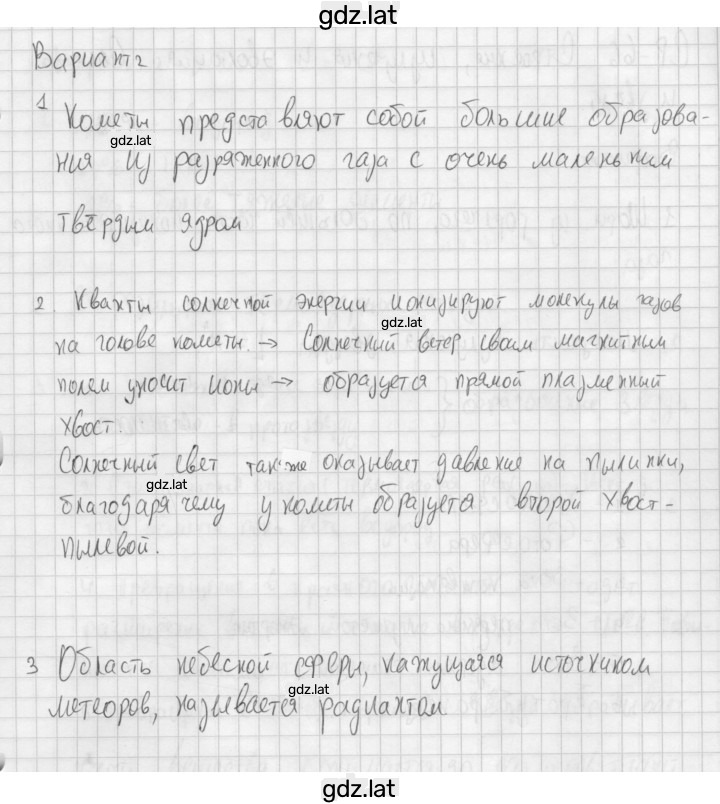 gdz.lat
Вариант 2
1 Кометы представляют собой большие образова-
gdz.lat
ния из разряженного газа с очень маленьким
твёрдым ядром
2. Кванты солнечной энергии ионизируют молекулы газов
gdz.lat
на голове кометы. → Солнечный ветер своим магнитным
полем уносит ионы → образуется прямой плазменный
хвост.
Солнечный свет также оказывает давление на пылинки,
gdz.lat
благодаря чему у кометы образуется второй хвост-
пылевой.
3 Область небесной сферы, кажущаяся источником
gdz.lat
метеоров, называется радиантом
gdz.lat